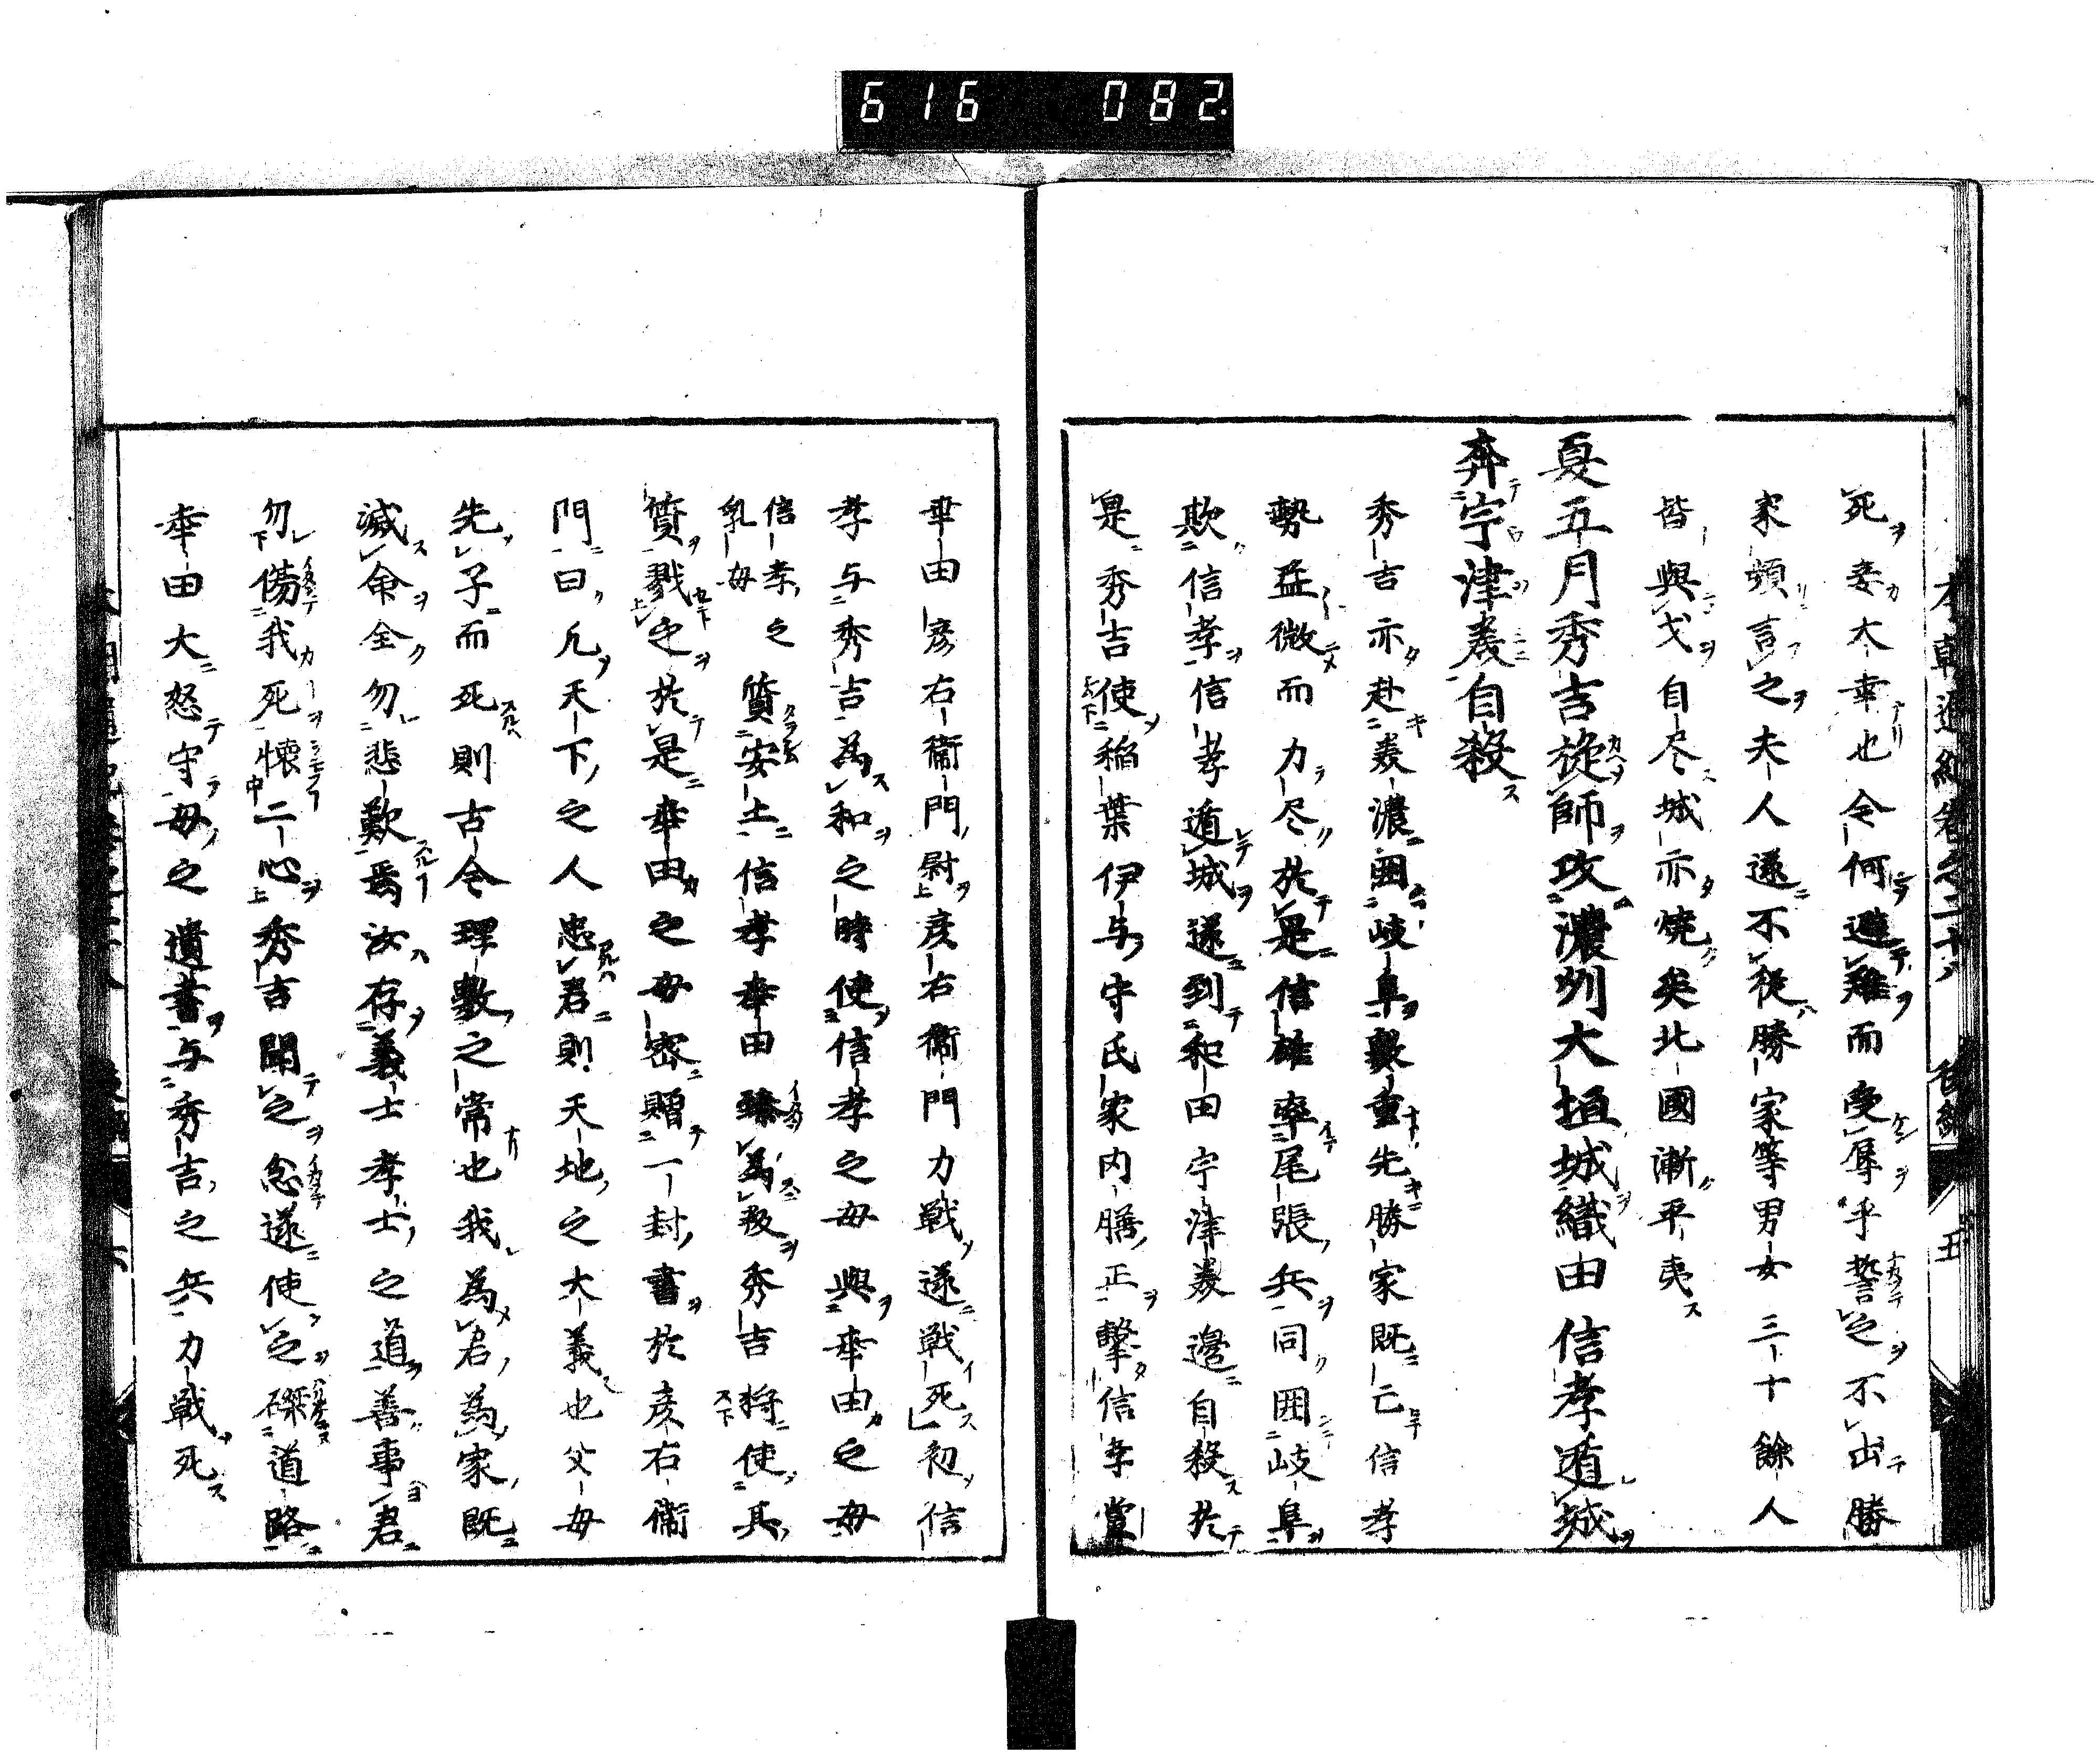 616 082
死妾太幸也今何避難而受辱乎誓之不出勝
家頻言之夫人遂不從勝家等男女三十餘人
皆與戈自尽城亦焼矣北國漸平夷
夏五月秀吉旋師攻濃州大垣城織田信孝遁城
奔宇津美自殺
秀吉亦赴美濃囲岐阜數重先勝家既亡信孝
勢益微而力尽於是信雄率尾張兵同囲岐阜
欺信孝信孝遁城遂到和田宇津美邊自殺於
是秀吉使稲葉伊与守氏家内膳正撃信孝黨
幸田彦右衛門尉彦右衛門力戦遂戦死初信
孝与秀吉為和之時使信孝之母與幸田之母
信孝之乳母質安土信孝幸田雖為叛秀吉将使其
質戮之於是幸田之母密贈一封書於彦右衛
門曰凡天下之人忠君則天地之大義也父母
先子而死則古今理數之常也我為君為家既
滅命全勿悲歎焉汝存義士孝士之道善事君
勿傷我死懐二心秀吉聞之忿遂使之磔道路
幸田大怒守母之遺書与秀吉之兵力戦死